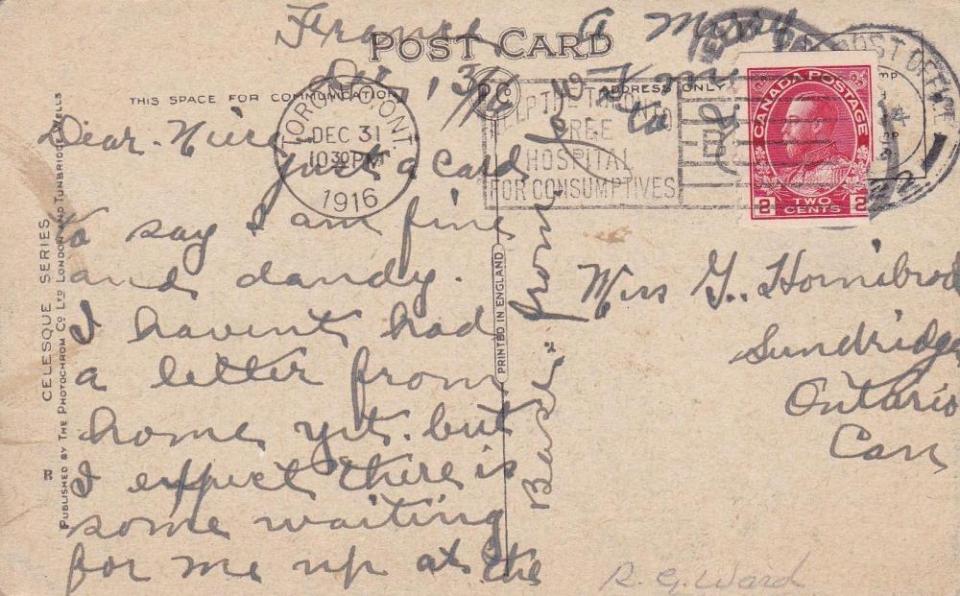 France
A Merry
POST CARD
THIS SPACE FOR COMMUNICATION
ADDRESS ONLY
TORONTO ONT
DEC 31
10 30 PM
1916
FREE
HOSPITAL
FOR CONSUMPTIVES
FIELD POST OFFICE
CANADA POSTAGE
2 TWO CENTS 2
Dear
Just a card
to say I am fine
and dandy.
I havent had
a letter from
home yet. but
I expect there is
some waiting
for me up at the
Base. from
Miss G. Hornibroo
Sundridge
Ontario
Can
R. G. Ward
CELESQUE SERIES
PUBLISHED BY THE PHOTOCHROM CO LTD LONDON AND TUNBRIDGE WELLS
R
PRINTED IN ENGLAND